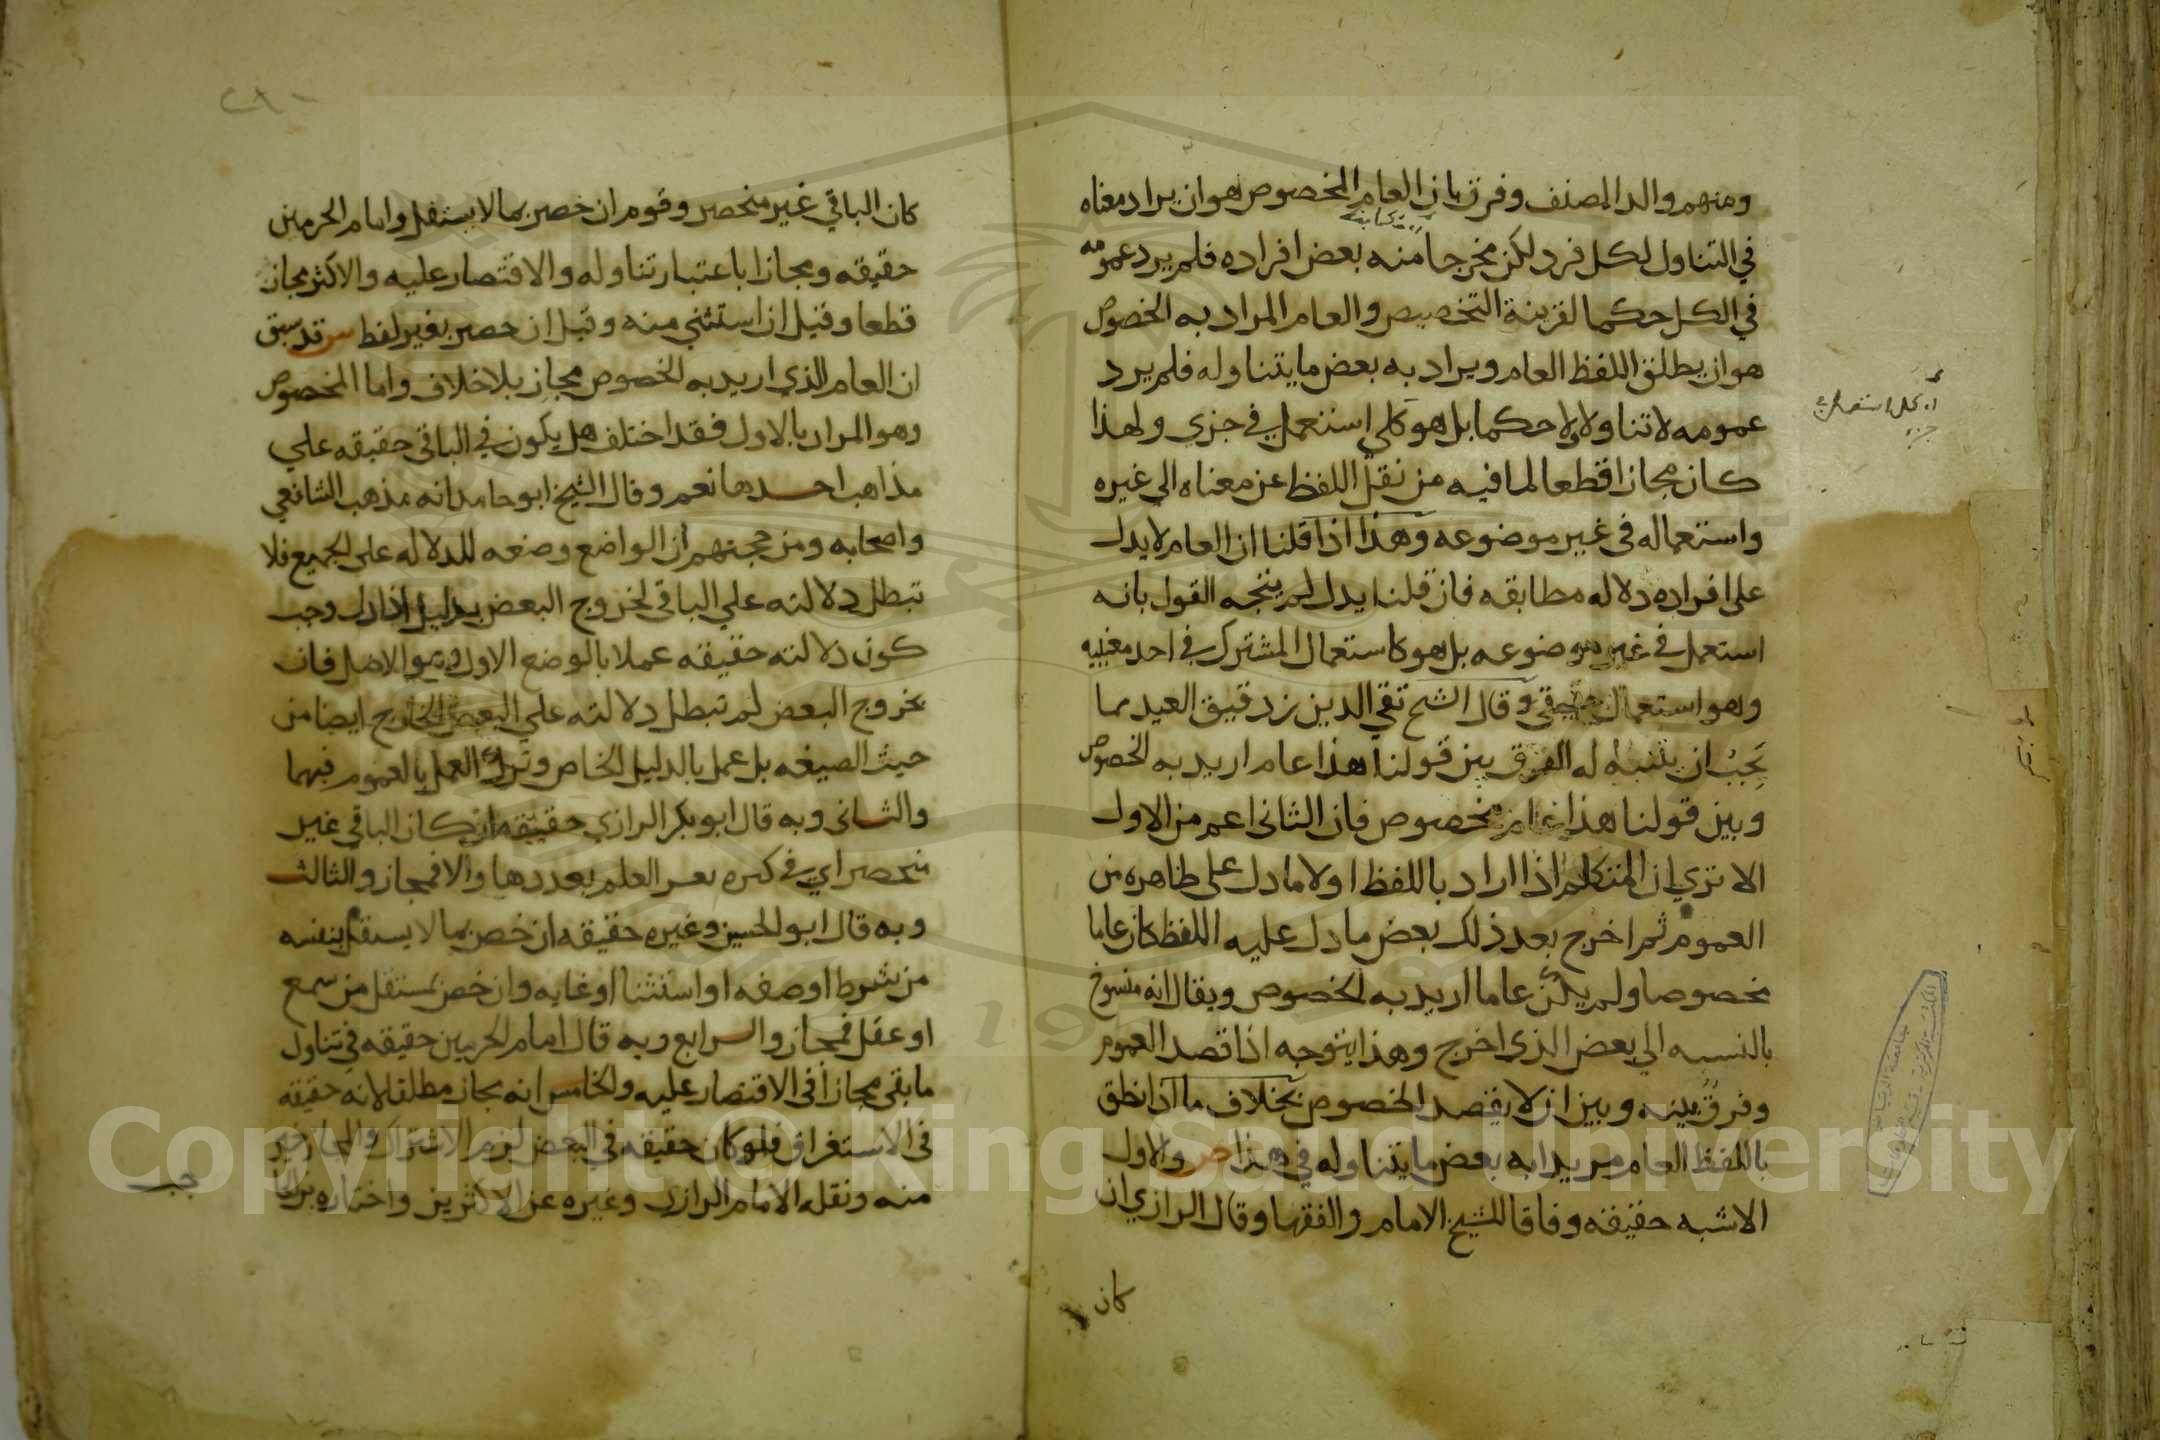 ومنهم والد المصنف وفرق بان العام المخصوص هو ان يراد معناه
في التناول لكل فرد لكن مخرجا منه بعض افراده فلم يرد عمومه
في الكل حكما لقرينة التخصيص والعام المراد به الخصوص
هو ان يطلق اللفظ العام ويراد به بعض ما يتناوله فلم يرد
عمومه لا تناولا ولا حكما بل هو كلي استعمل في جزي ولهذا
كان مجازا قطعا لما فيه من نقل اللفظ عن معناه الي غيره
واستعماله في غير موضوعه وهذا اذا قلنا ان العام لا يدل
على افراده دلاله مطابقه فان قلنا يدل لم يتجه القول بانه
استعمل في غير موضوعه بل هو كاستعمال المشترك في احد معنييه
وهو استعمال حقيقي وقال الشح تقي الدين بن دقيق العيد مما
يجب ان يتنبه له الفرق بين قولنا هذا عام اريد به الخصوص
وبين قولنا هذا عام مخصوص فان الثاني اعم من الاول
الا تري ان المتكلم اذا اراد باللفظ اولا ما دل على ظاهره من
العموم ثم اخرج بعد ذلك بعض ما دل عليه اللفظ كان عاما
مخصوصا ولم يكن عاما اريد به الخصوص ويقال انه منسوخ
بالنسبه الي بعض الذي اخرج وهذا يتوجه اذا قصد العموم
وفرق بينه وبين ان لا يقصد الخصوص بخلاف ما اذا نطق
باللفظ العام مريدا به بعض ما يتناوله في هذا ص والاول
الاشبه حقيقه وفاقا للشيخ الامام والفقها وقال الرازي ان
كان
كان الباقي غير منحصر وقوم ان خص بما لا يستقل وامام الحرمين
حقيقه ومجازا باعتبار تناوله والاقتصار عليه والاكثر مجاز
قطعا وقيل ان استثني منه وقيل ان خص بغير لفظ س قد سبق
ان العام الذي اريد به الخصوص مجاز بلا خلاف واما المخصوص
وهو المراد بالاول فقد اختلف هل يكون في الباقي حقيقه علي
مذاهب احدها نعم وقال الشيخ ابو حامد انه مذهب الشافعي
واصحابه ومن حجتهم ان الواضع وضعه للدلاله على الجميع فلا
تبطل دلالته علي الباقي لخروج البعض بدليل اذا دل وجب
كون دلالته حقيقه عملا بالوضع الاول وهو الاصل فان
بخروج البعض لم تبطل دلالته علي البعض الخارج ايضا من
حيث الصيغه بل عمل بالدليل الخاص وترك العمل بالعموم فيهما
والثاني وبه قال ابو بكر الرازي حقيقه ان كان الباقي غير
منحصر اي في كثره يعسر العلم بعددها والا فمجاز والثالث
وبه قال ابو الحسين وغيره حقيقه ان خص بما لا يستقل بنفسه
من شرط او صفه او استثنا او غايه وان خص بمستقل من سمع
او عقل فمجاز والرابع وبه قال امام الحرمين حقيقه في تناول
ما بقي مجاز في الاقتصار عليه والخامس انه مجاز مطلقا لانه حقيقه
في الاستغراق فلو كان حقيقه في البعض لزم الاشتراك والمجاز خير
منه ونقله الامام الرازي وغيره عن الاكثرين واختاره
Copyright © King Saud University